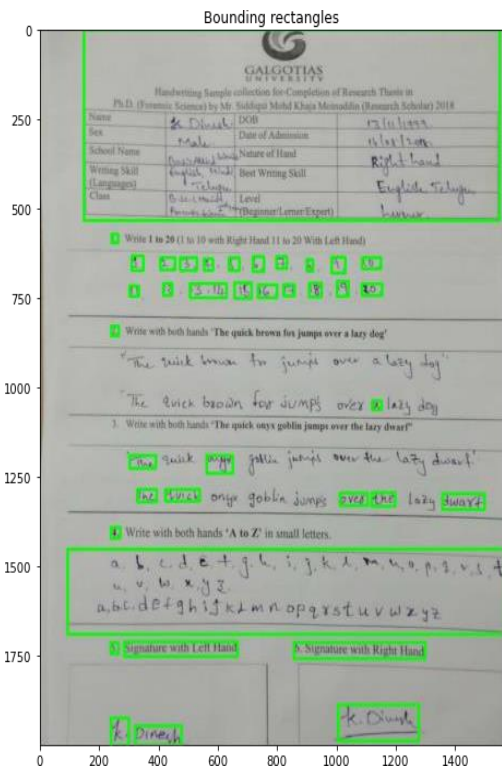 Bounding rectangles
GALGOTIAS
UNIVERSITY
Handwriting Sample collection for Completion of Research Thesis in
Ph.D. (Forensic Science) by Mr. Siddiqui Mohd Khaja Moinuddin (Research Scholar) 2018
Name K. Dinesh DOB
Sex Male Date of Admission
School Name Nature of Hand Right hand
Writing Skill (Languages) English, Hindi Telugu Best Writing Skill English Telugu
Class Level (Beginner/Lerner/Expert) Lerner
1. Write 1 to 20 (1 to 10 with Right Hand 11 to 20 With Left Hand)
2. Write with both hands 'The quick brown fox jumps over a lazy dog'
"The quick brown fox jumps over a lazy dog"
"The quick brown fox jumps over a lazy dog
3. Write with both hands 'The quick onyx goblin jumps over the lazy dwarf'
'The quick onyx goblin jumps over the lazy dwarf.'
the quick onyx goblin jumps over the lazy dwarf
4. Write with both hands 'A to Z' in small letters.
a, b, c, d, e, f, g, h, i, j, k, l, m, n, o, p, q, r, s, t
u, v, w, x, y, z
a, b, c, d e f g h i j k l m n o p q r s t u v w x y z
5. Signature with Left Hand 6. Signature with Right Hand
K. Dinesh K. Dinesh
0
250
500
750
1000
1250
1500
1750
0 200 400 600 800 1000 1200 1400